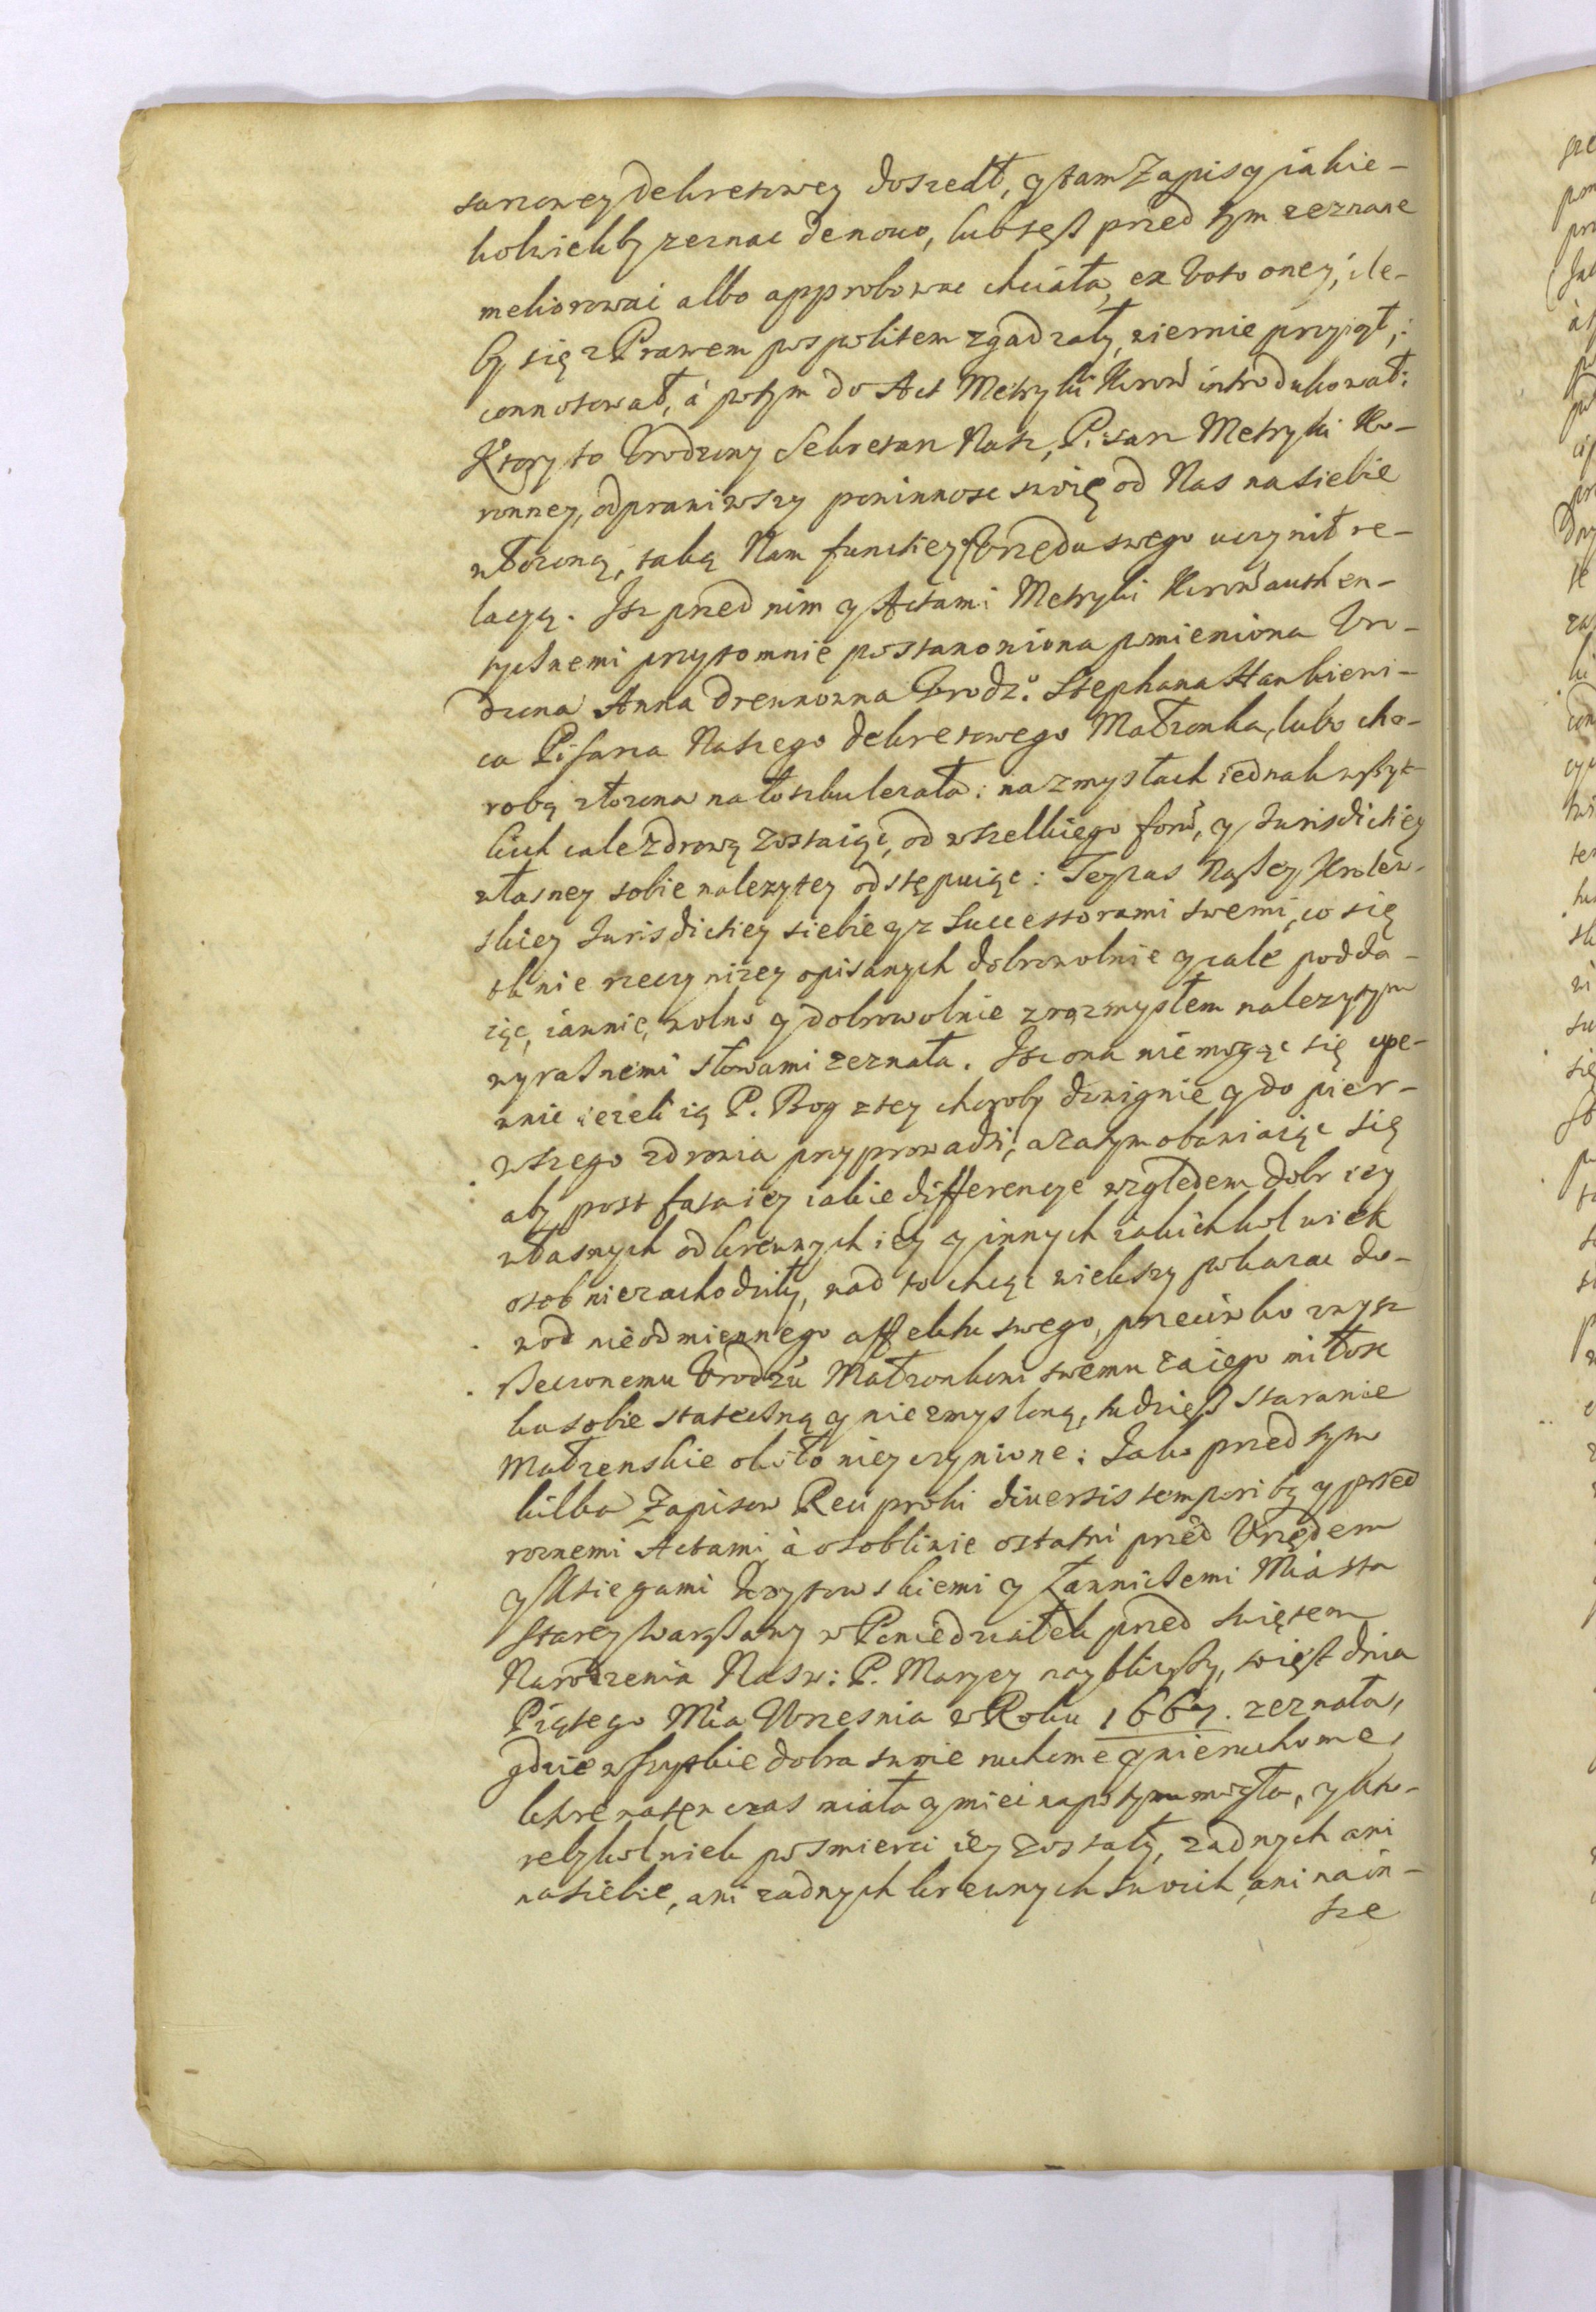 sarzowey dekretowey doszedł, y tam Zapisy iakie-
kolwiekby zeznac denovo, lub tesz przed tym zeznane
meliorowai albo approbowac chciała, ex voto oney, ile-
by się z Prawem pospolitem zgadzały, wiernie przyiął,
connotował, á potym do Act Metryki Koroń introdukował:
Ktory to Vrodzony Sekretarz Nasz, Pisarz Metryki Ko-
ronney, odprawiwszy powinnosc swoię od Nas na siebie
włozoną, taką Nam funckiey y Vrzędu swego uczynił re-
lacyą. Isz przed nim y Actami Metryki Koroń authen-
tycznemi przytomnie postanowiona pomieniona Vro-
dzona Anna Drewnowna Vrodzo: Stephana Hankiewi-
ca Pisarza Naszego dekretowego Małzonka, lubo cho-
robą złozona na łoszku lezała: na zmysłach iednak wszyt-
kich cale zdrową zostaiąc, od wszelkiego forú, y Jurisdictiey
własney sobie nalezytey odstępuiąc: Teyzas Naszey Krolew-
skiey Jurisdictiey siebie y z Successorami swemi, co się
tknie rzeczy nizey opisanych dobrowolnie y cale podda-
iąc, iawnie, wolno y dobrowolnie z rozmysłem nalezytym
wyrasnemi słowami zeznała. Isz ona nie mogąc się upe-
wnic iezeli ią P. Bog z tey choroby dzwignie y do pier-
wszego zdrowia przyprowadzi, a zatym obawiaiąc się
aby post fata iey iakie differencye względem dobr iey
własnych od krewnych iey y innych iakichkolwiek
osob nie zachodziły, nad to chcąc wiekszy pokazac do-
wod nieodmiennego affektu swego, przeciwko zwysz
rzeczonemu Vrodzú Małzonkowi swemu za iego miłosc
ku sobie stateczną y niezmysloną, tudziesz staranie
Małzenskie około niey czynione: Jako przed tym
kilka Zapisow Reciproki diversis temporibq y przed
roznemi Actami, à osobliwie ostatni przed Vrzędem
y Ksiegami Woytowskiemi y Ławniczemi Miasta
Starey Warszawy w Poniedziałek przed Swiętem
Narodzenia Nasw: P. Maryey nayblizszy, tiest dnia
Piątego Mca Wrzesnia w Roku 1667. zeznała,
gdzie wszystkie dobra swoie ruchome y nieruchome,
ktore na ten czas miała y miec napotym mogła, y kto-
rebykolwiek po smierci iey zostały, zadnych ani
na siebie, ani zadnych krewnych swoich, ani na in-
sze